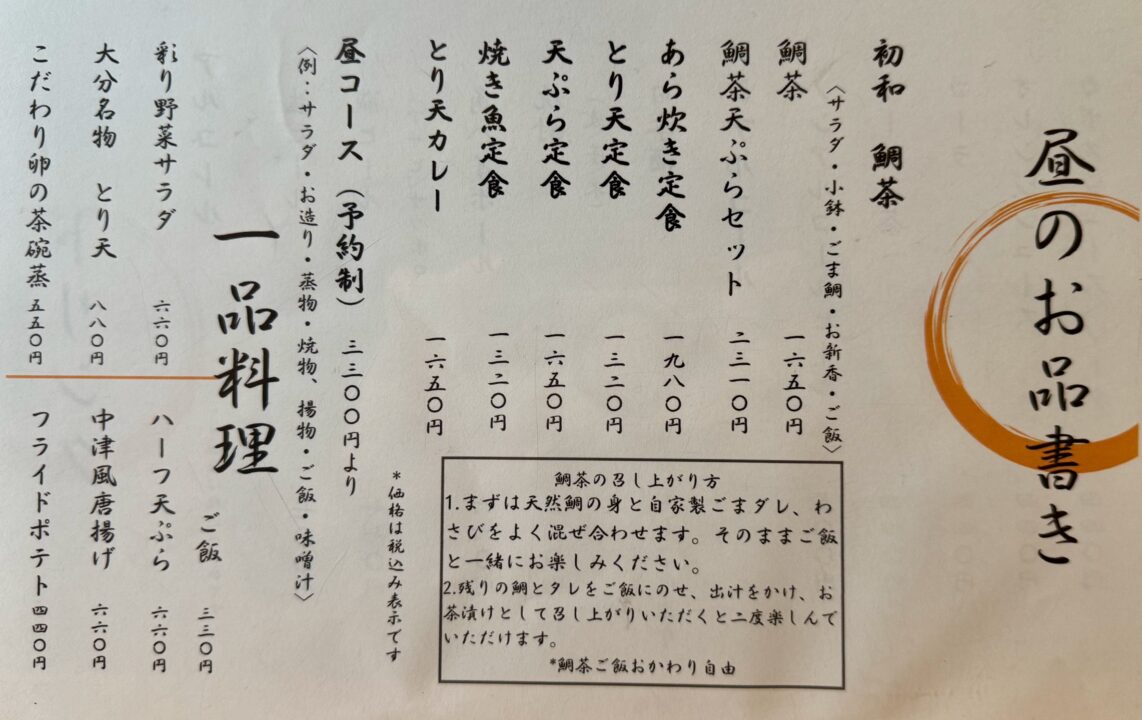 昼のお品書き
初和 鯛茶
〈サラダ・小鉢・ごま鯛・お新香・ご飯〉
鯛茶 一六五〇円
鯛茶天ぷらセット 二三一〇円
あら炊き定食 一九八〇円
とり天定食 一三二〇円
天ぷら定食 一六五〇円
焼き魚定食 一三二〇円
とり天カレー 一六五〇円
*価格は税込み表示です
鯛茶の召し上がり方
1.まずは天然鯛の身と自家製ごまダレ、わ
さびをよく混ぜ合わせます。そのままご飯
と一緒にお楽しみください。
2.残りの鯛とタレをご飯にのせ、出汁をかけ、お
茶漬けとして召し上がりいただくと二度楽しんで
いただけます。
*鯛茶ご飯おかわり自由
昼コース（予約制） 三三〇〇円より
〈例：サラダ・お造り・蒸物・焼物、揚物・ご飯・味噌汁〉
一品料理
ご飯 三三〇円
彩り野菜サラダ 六六〇円
ハーフ天ぷら 六六〇円
大分名物 とり天 八八〇円
中津風唐揚げ 六六〇円
こだわり卵の茶碗蒸 五五〇円
フライドポテト 四四〇円